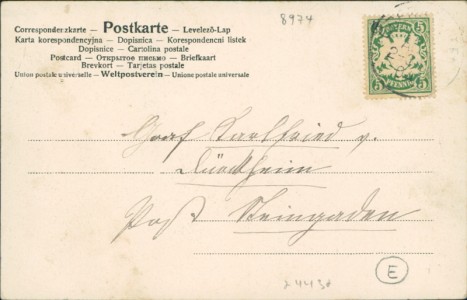 8974
Correspondenzkarte — Postkarte — Levelező-Lap
Karta korespondencyjna — Dopisnica — Korespondencni listek
Dopisnice — Cartolina postale
Postcard — Открытое письмо — Briefkaart
Brevkort — Tarjetas postale
Union postale universelle — Weltpostverein — Unione postale universale
BAYERN
5 5
PFENNIG
5 5
Graf Karlfried v.
Dürckheim
Post Steingaden
E